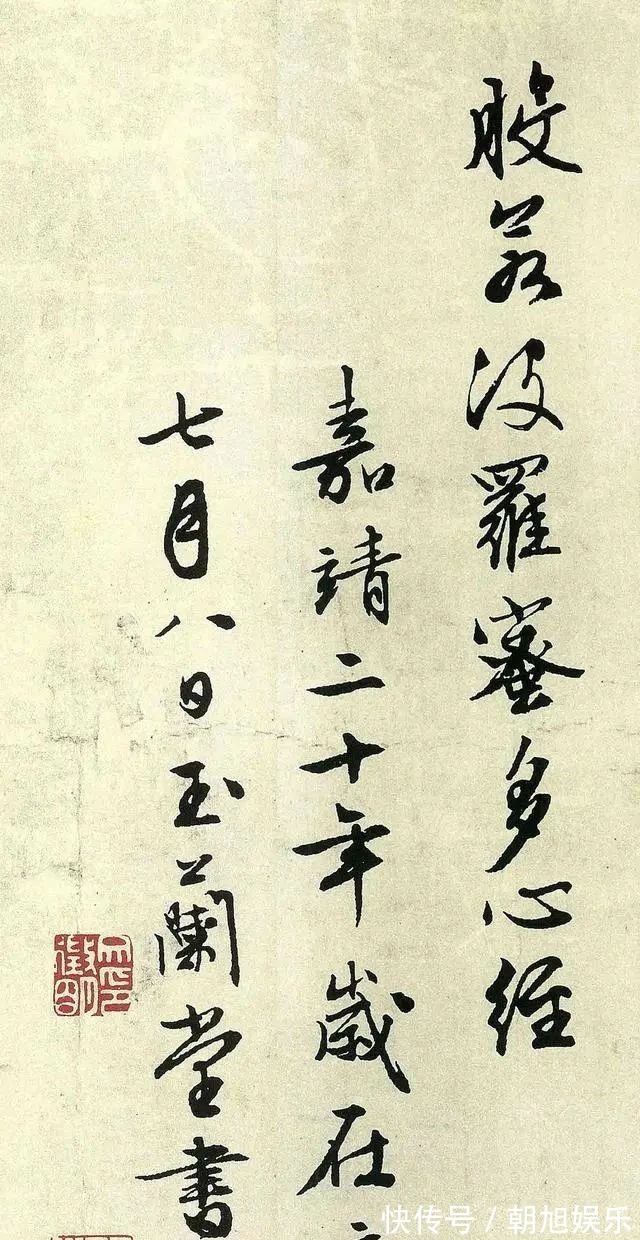 般若波羅蜜多心經
嘉靖二十年歲在
七月八日玉蘭堂書
快传号 / 朝旭娱乐